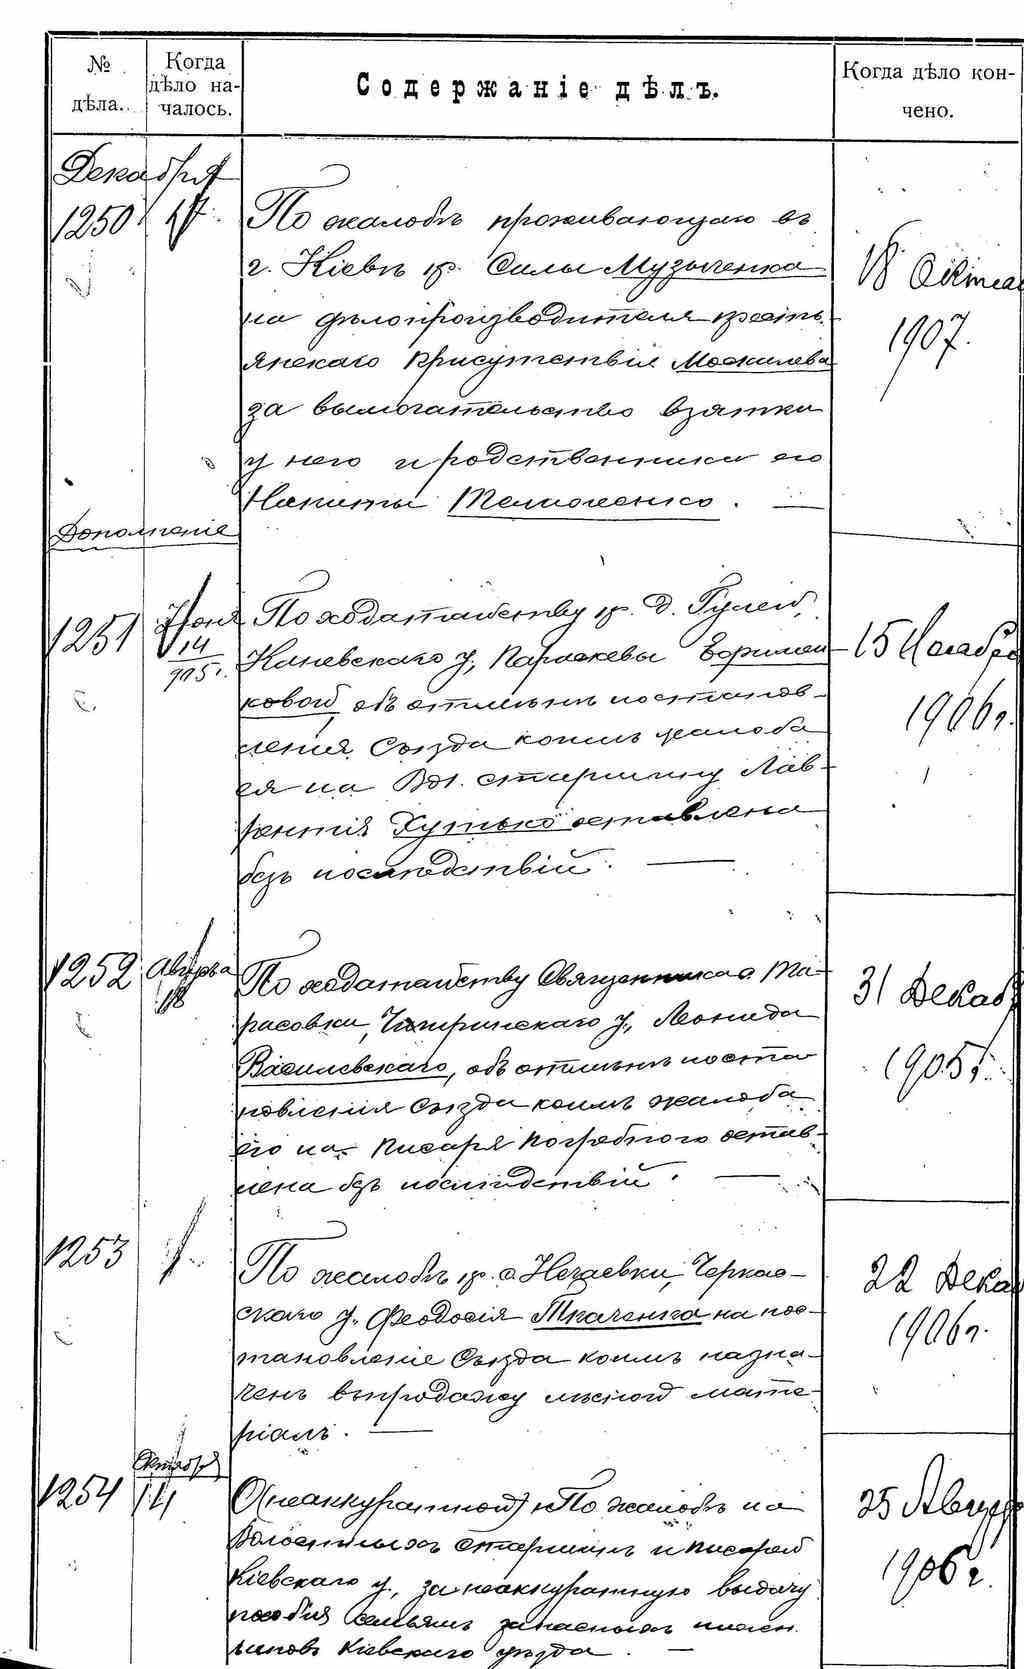 № дѣла.
Когда дѣло на-
чалось.
Содержаніе дѣлъ.
Когда дѣло кон-
чено.
Декабря
1250
17
По жалобѣ проживающаго въ
г. Кіевѣ кр. Силы Музыченка
на дѣлопроизводителя кресть-
янскаго присутствія
за вымогательство взятки
у него и родственника его
Никиты
18 Октяб
1907.
Дополненіе
1251
Іюня
14
905 г.
По ходатайству кр. д.
Каневскаго у., Параскевы
ковой, объ отмѣнѣ постанов-
ленія Съѣзда коимъ жалоба
ея на Вол. старшину Лав-
рентія Хутько оставлена
безъ послѣдствій.
15 Ноябр
1906 г.
1252
Августа
18
По ходатайству Священника с. Та-
расовки, Чигиринскаго у., Леонида
Василевскаго, объ отмѣнѣ поста-
новленія Съѣзда коимъ жалоба
его на писаря Погребного остав-
лена безъ послѣдствій.
31 Декаб
1905 г.
1253
По жалобѣ кр. с. Нечаевки, Черкас-
скаго у. Феодосія Ткаченка на пос-
тановленіе Съѣзда коимъ назна-
ченъ въ продажу лѣсной мате-
ріалъ.
22 Дека
1906 г.
Октября
1254
14
О (неаккуратной) По жалобѣ на
Волостныхъ старшинъ и писарей
Кіевскаго у., за неаккуратную выдачу
пособія семьямъ запасныхъ нижн.
чиновъ Кіевскаго уѣзда.
25 Авгус
1906 г.